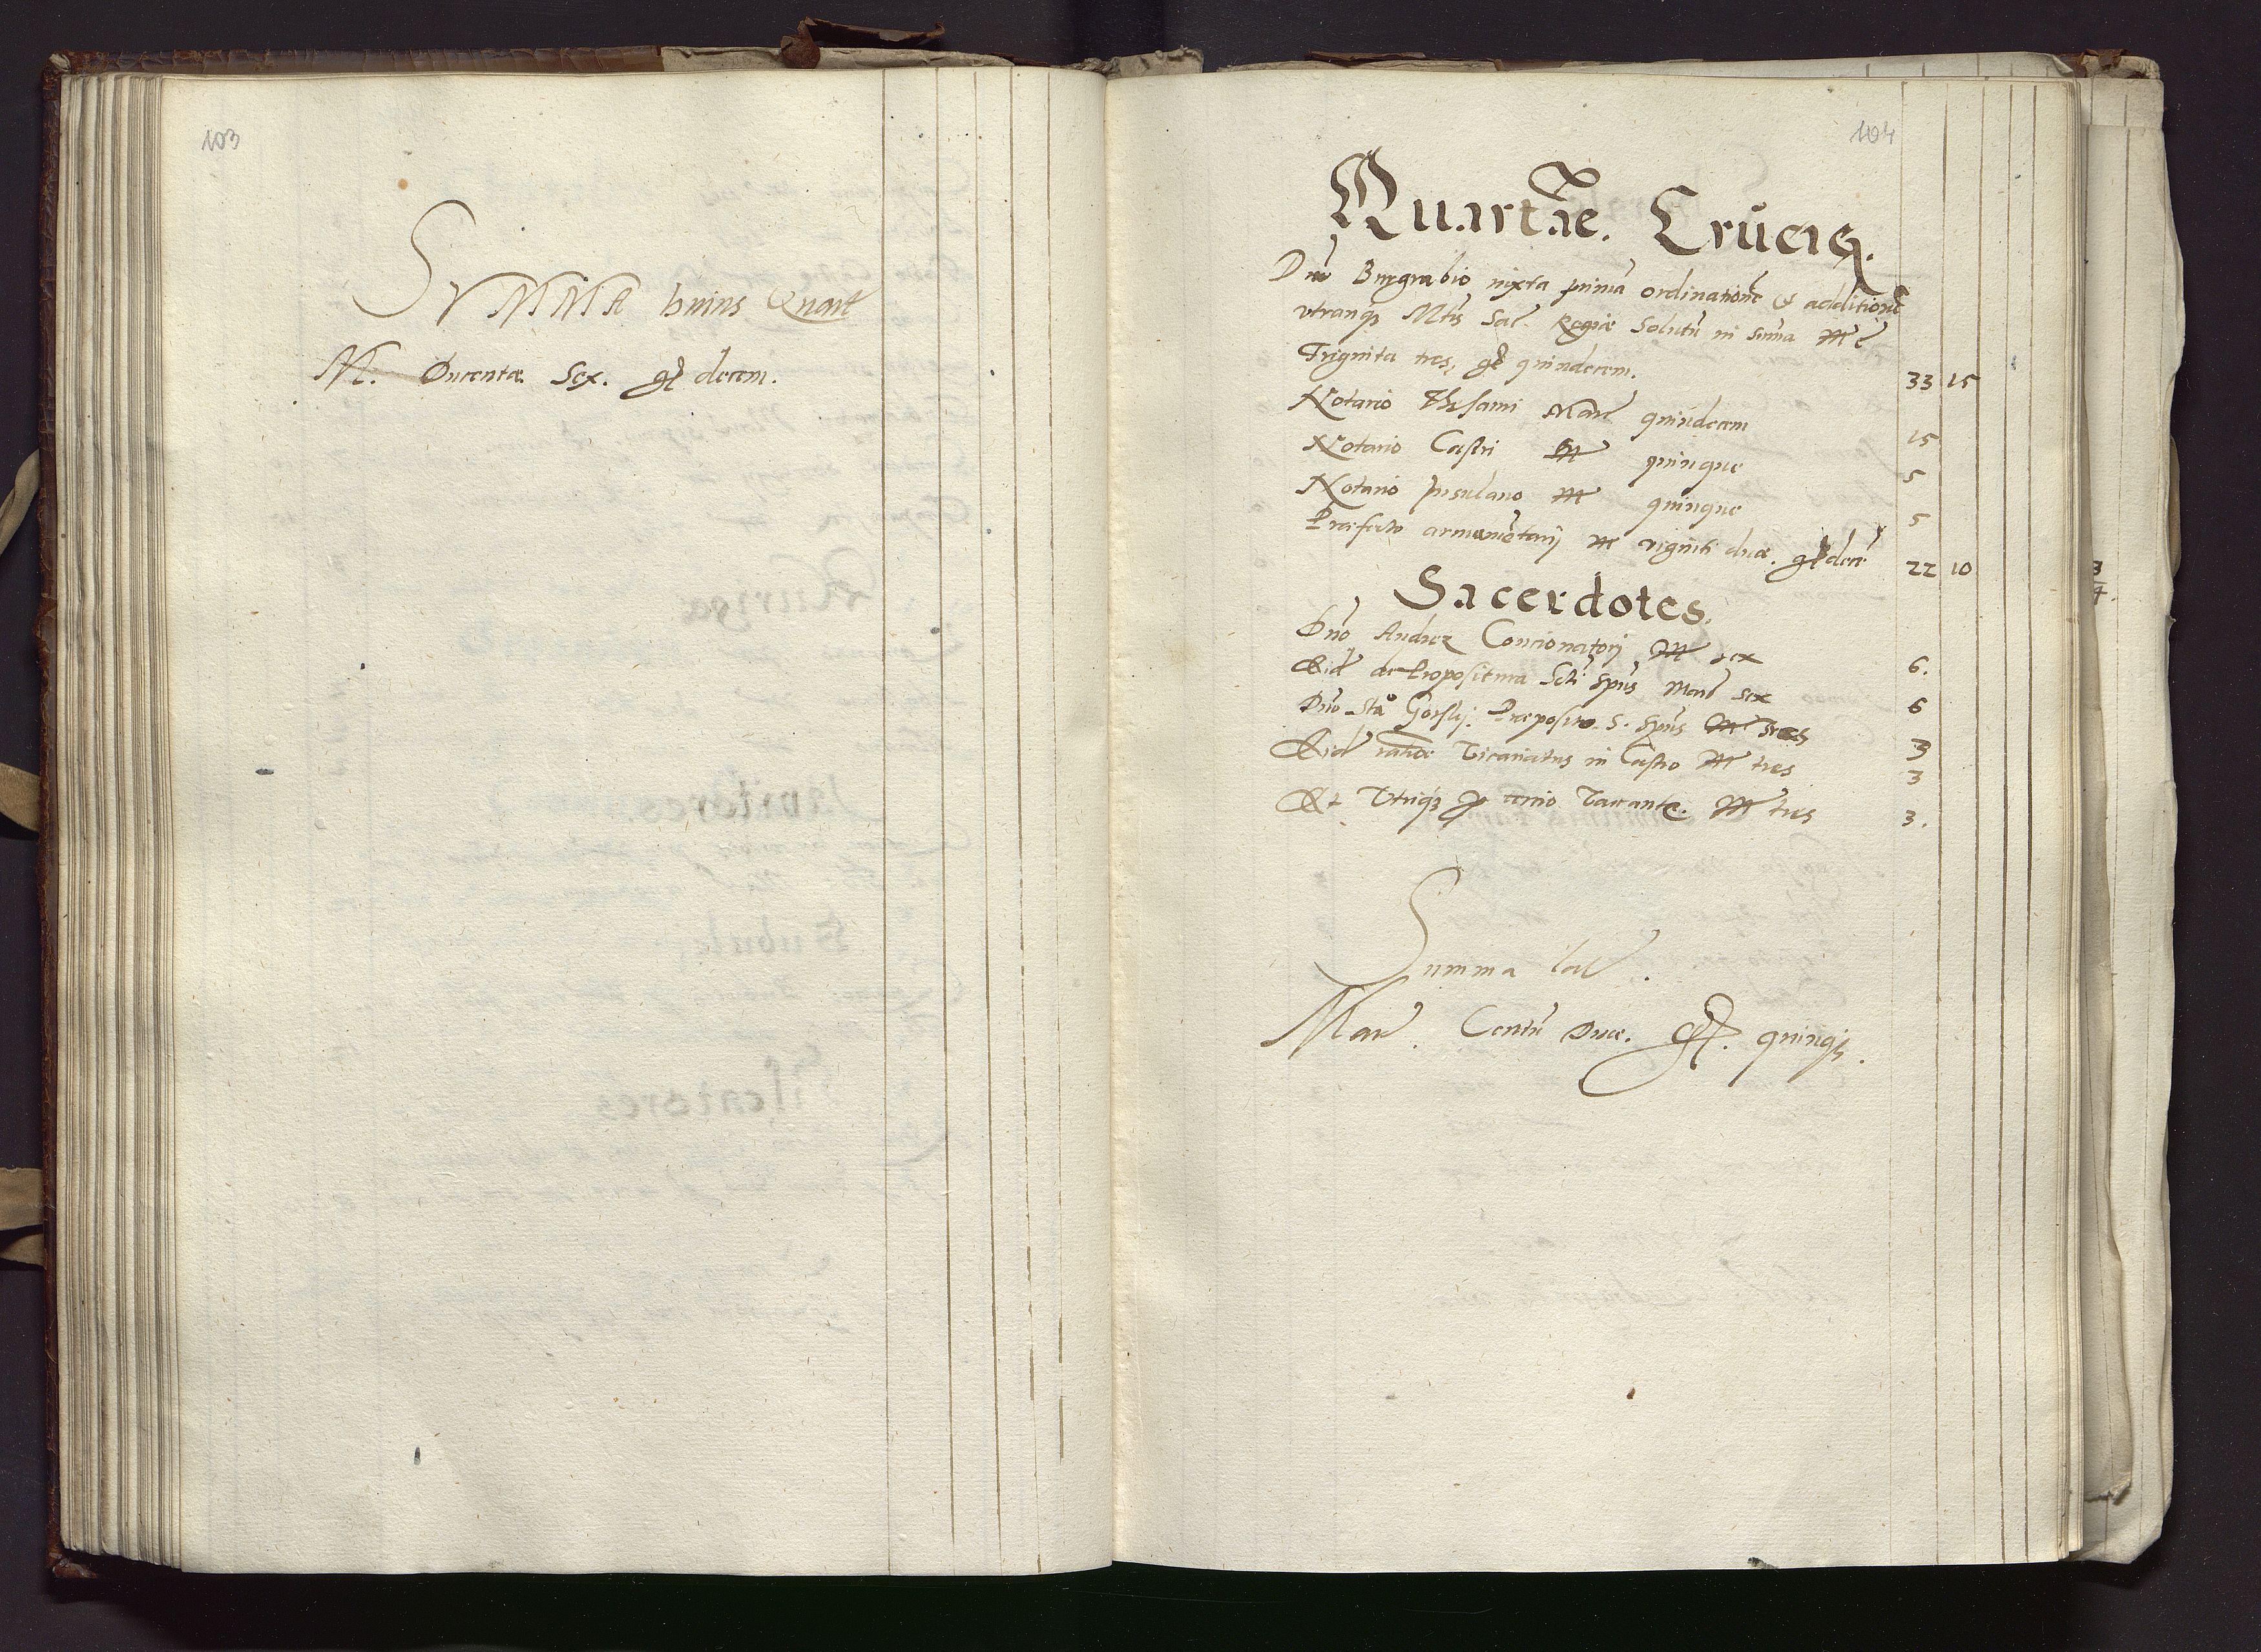 103
SVMMA huius Quart
M. Ducentæ Sex. gr decem.
104
Quartæ. Crucis.
Dno Burgrabio iuxta primā ordinationē & additionē
vtranq3 Mtis Sac. Regiæ Solutū in sūma M
Triginta tres, gr quindecem. 33 15
Notario Thesauri Marc quindecem 15
Notario Castri M quinque 5
Notario Insulano M quinque 5
Præfecto armamētarij M viginti duæ. gr decē 22 10
Sacerdotes.
Dno Andreæ Concionatorj M sex 6.
Eid de Præpositura Scti Spūs Marc sex 6
Dno Sta Gorskj. Præposito. S. Spūs M tres 3
Eid ratiōe Vicariatus in Castro M tres 3
Et Vtriq3 p Vacante. M tres 3.
Summa
Marc. Centū Duæ. gr. quinq3.
3
4.